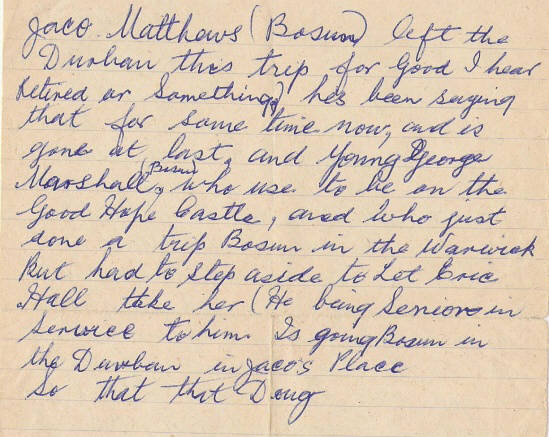 Jaco. Matthews (Bosun) left the
Durban this trip for Good I hear
Retired or Something, hes been saying
that for some time now, and is
gone at last, and Young George
Marshall, (Bosun) who use to be on the
Good Hope Castle, and who just
done a trip Bosun in the Warwick
But had to Step aside to Let Eric
Hall take her (He being Senior in
Service to him. Is going Bosun in
the Durban in Jaco's Place
So that that Doug